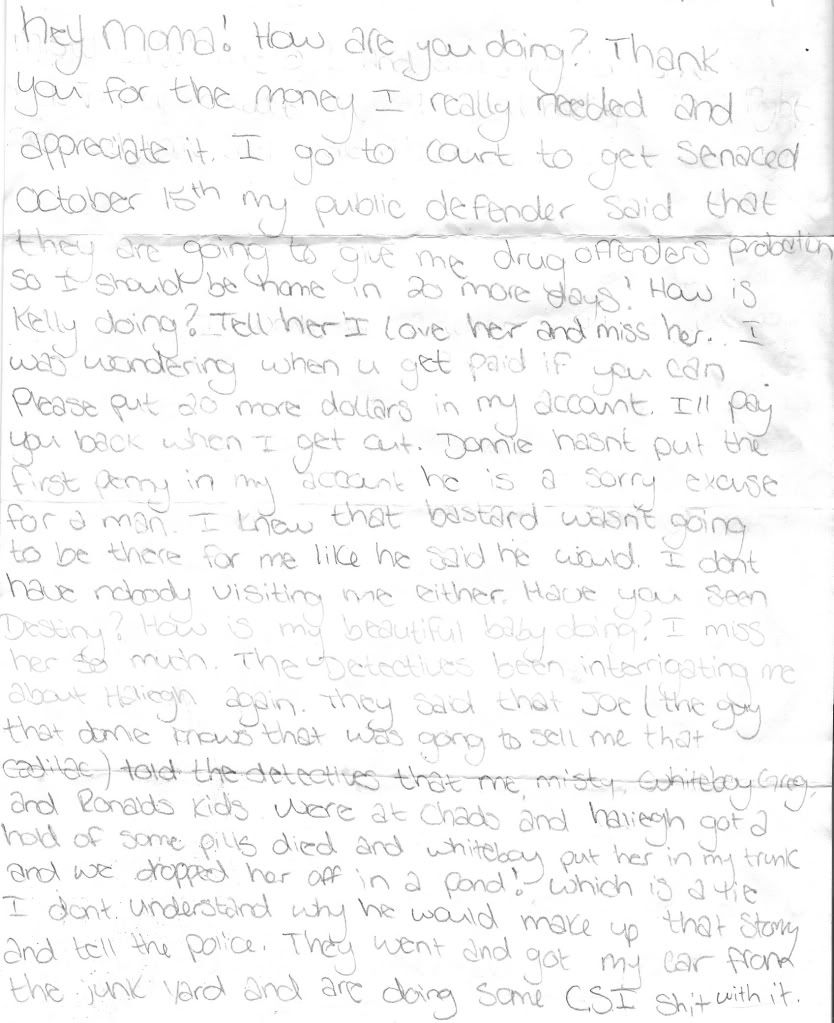 hey moma! How are you doing? Thank
you for the money I really needed and
appreciate it. I go to court to get senaced
October 15th my public defender said that
they are going to give me drug offenders probation
so I should be home in 20 more days! How is
Kelly doing? Tell her I love her and miss her. I
was wondering when u get paid if you can
Please put 20 more dollars in my account. I'll pay
you back when I get out. Donnie hasnt put the
first penny in my account he is a sorry excuse
for a man. I knew that bastard wasn't going
to be there for me like he said he would. I dont
have nobody visiting me either. Have you seen
Destiny? How is my beautiful baby doing? I miss
her so much. The Detectives been interrigating me
about Haliegh again. They said that Joe (the guy
that knows that was going to sell me that
cadilac) told the detectives that me, misty, whiteboy Greg,
and Ronalds kids were at Chads and haliegh got a
hold of some pills died and whiteboy put her in my trunk
and we dropped her off in a pond! which is a lie
I dont understand why he would make up that story
and tell the police. They went and got my car from
the junk yard and are doing some C.S.I shit with it.